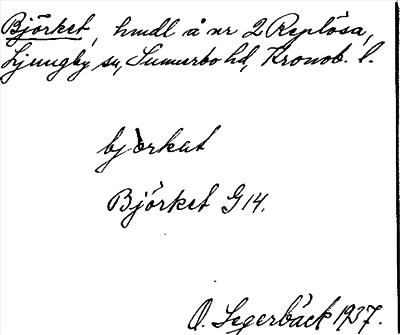 Björket, hmdl å nr 2 Replösa,
Ljungby sn, Sunnerbo hd, Kronob. l.
bjørkat
Björket G14.
O. Segerbäck 1937.